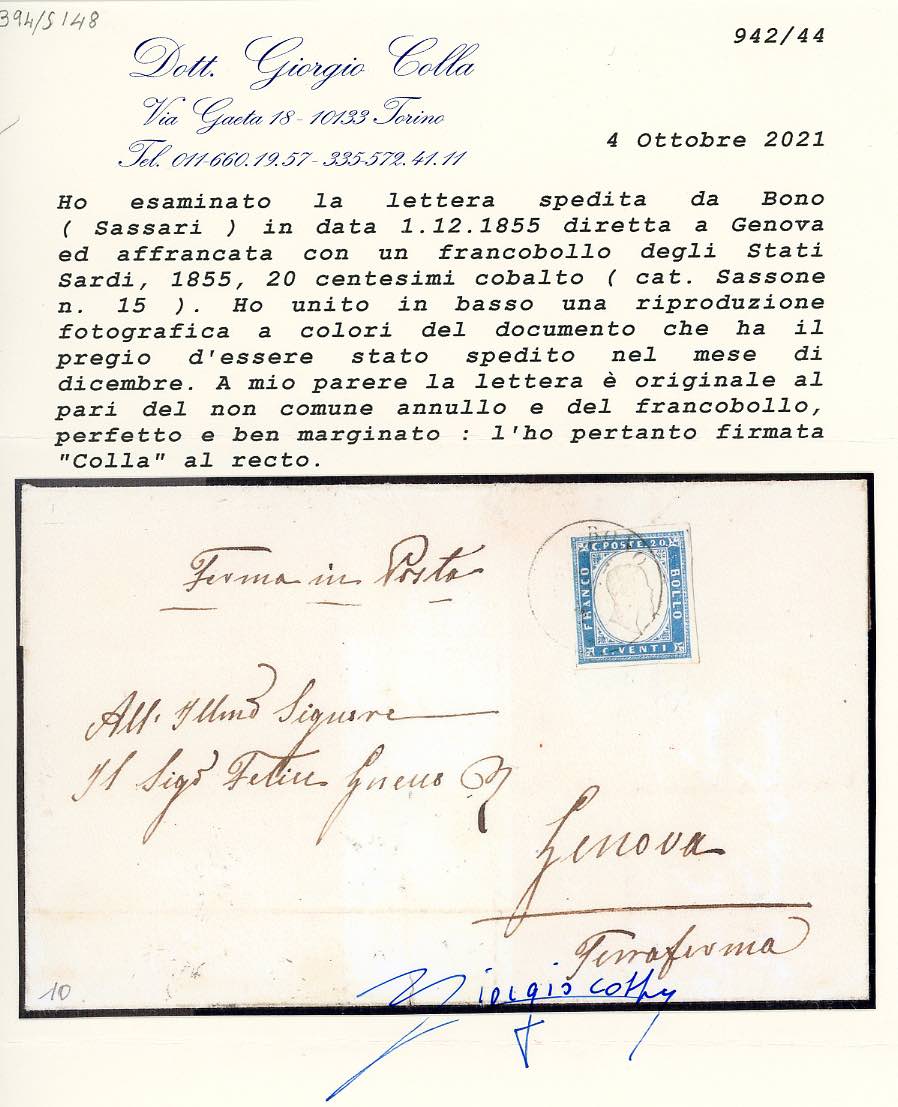 394/S148
942/44
Dott. Giorgio Colla
Via Gaeta 18 - 10133 Torino
Tel. 011-660.19.57 - 335-572.41.11
4 Ottobre 2021
Ho esaminato la lettera spedita da Bono
( Sassari ) in data 1.12.1855 diretta a Genova
ed affrancata con un francobollo degli Stati
Sardi, 1855, 20 centesimi cobalto ( cat. Sassone
n. 15 ). Ho unito in basso una riproduzione
fotografica a colori del documento che ha il
pregio d'essere stato spedito nel mese di
dicembre. A mio parere la lettera è originale al
pari del non comune annullo e del francobollo,
perfetto e ben marginato : l'ho pertanto firmata
"Colla" al recto.
BONO
C. POSTE. 20.
FRANCO
BOLLO
C. VENTI
Ferma in Posta
All. Illmo Signore
Il Sigr Felice
Genova
Terraferma
10
Giorgio Colla